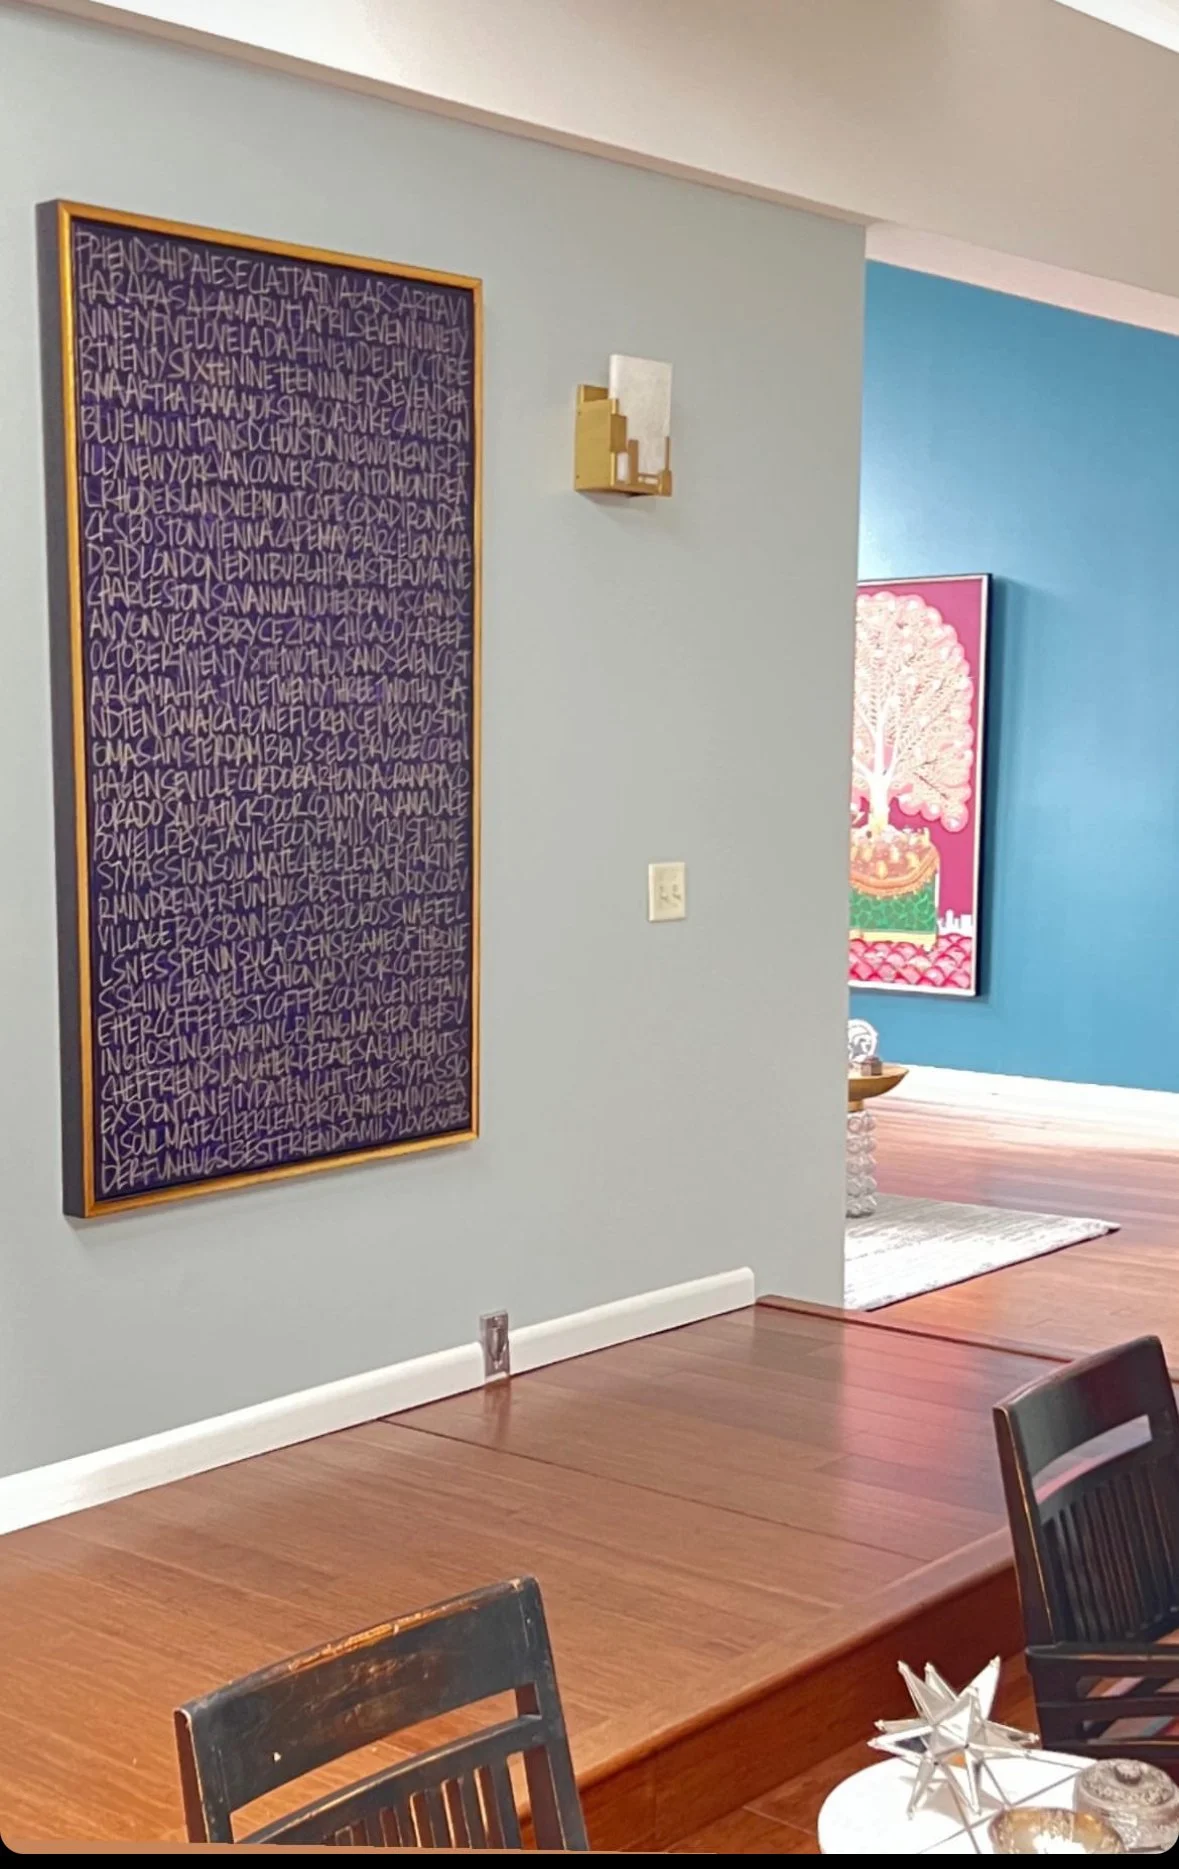 FRIENDSHIPAIESECIATPATNALARSARITAVI
HARAKASAKAMARUTIAPRILSEVENNINETE
NINETYFIVELOVELADAKHNEWDELHIOCTOBE
RTWENTYSIXTHNINETEENNINETYSEVENDHA
RMAARTHAKAMAMOKSHAGOADUKECAMERON
BLUEMOUNTAINSDCHOUSTONNEWORLEANSPH
ILLYNEWYORKVANCOUVERTORONTOMONTREA
LRHODEISLANDVERMONTCAPECODADIRONDA
CKSBOSTONVIENNACAPEMAYBARCELONAMA
DRIDLONDONEDINBURGHPARISPERUMAINE
CHARLESTONSAVANNAHOUTERBANKSGRANDC
ANYONVEGASBRYCEZIONCHICAGO
OCTOBERTWENTY8THTWOTHOUSANDSEVENCOST
ARICAMAHIKAJUNETWENTYTHREETWOTHOUSA
NDTENJAMAICAROMEFLORENCEMEXICOSTTH
OMASAMSTERDAMBRUSSELSBRUGGECOPEN
HAGENSEVILLECORDOBARHONDAGRANADACO
LORADOSAUGATUCKDOORCOUNTYPANAMALAKE
POWELLREYKJAVIKFOODFAMILYTRUSTHONE
STYPASSIONSOULMATECHEERLEADERPARTNE
RMINDREADERFUNHUGSBESTFRIENDROSCOEV
VILLAGEBOYSTOWNBOCADELTOROSSNAEFEL
LSNESSPENINSULAODENSEGAMEOFTHRONE
SSKIINGTRAVELFASHIONADVISORCOFFEE
ETHERCOFFEEBESTCOFFEECOOKINGENTERTAIN
INGHOSTINGKAYAKINGBIKINGMASTERCHEFSU
CHEFFRIENDSLAUGHTERDEBATESARGUMENTS
EXSPONTANEITYDATENIGHTHONESTYPASSIO
NSOULMATECHEERLEADERPARTNERMINDREA
DERFUNHUGSBESTFRIENDFAMILYLOVEXOXO